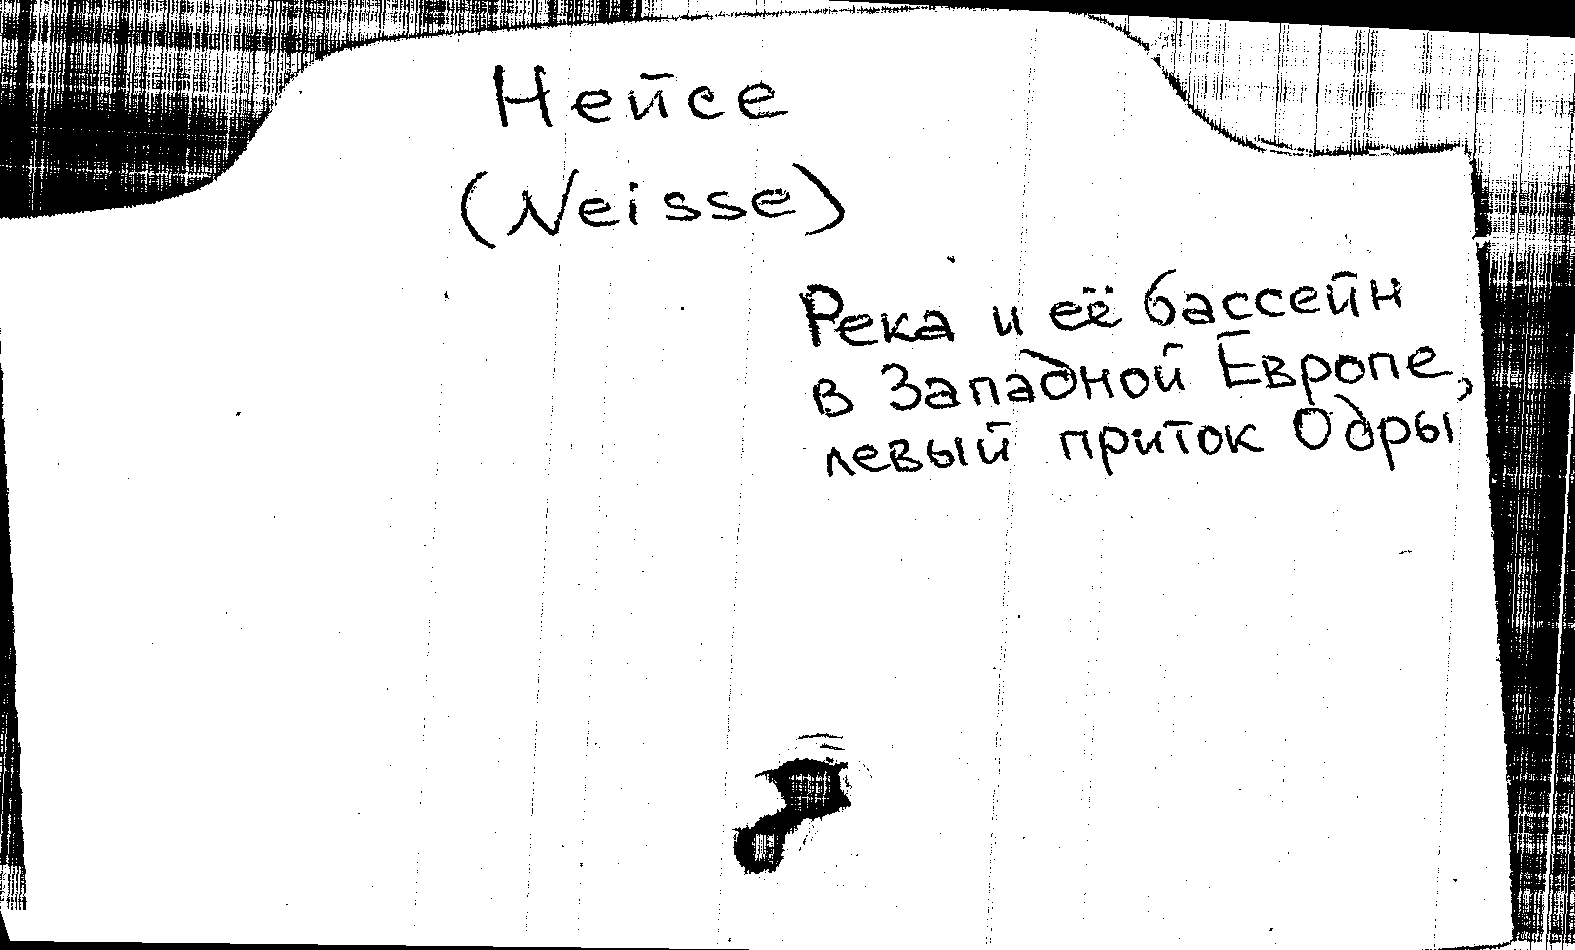 Нейсе
(Neisse)
Река и её бассейн
в Западной Европе,
левый приток Одры